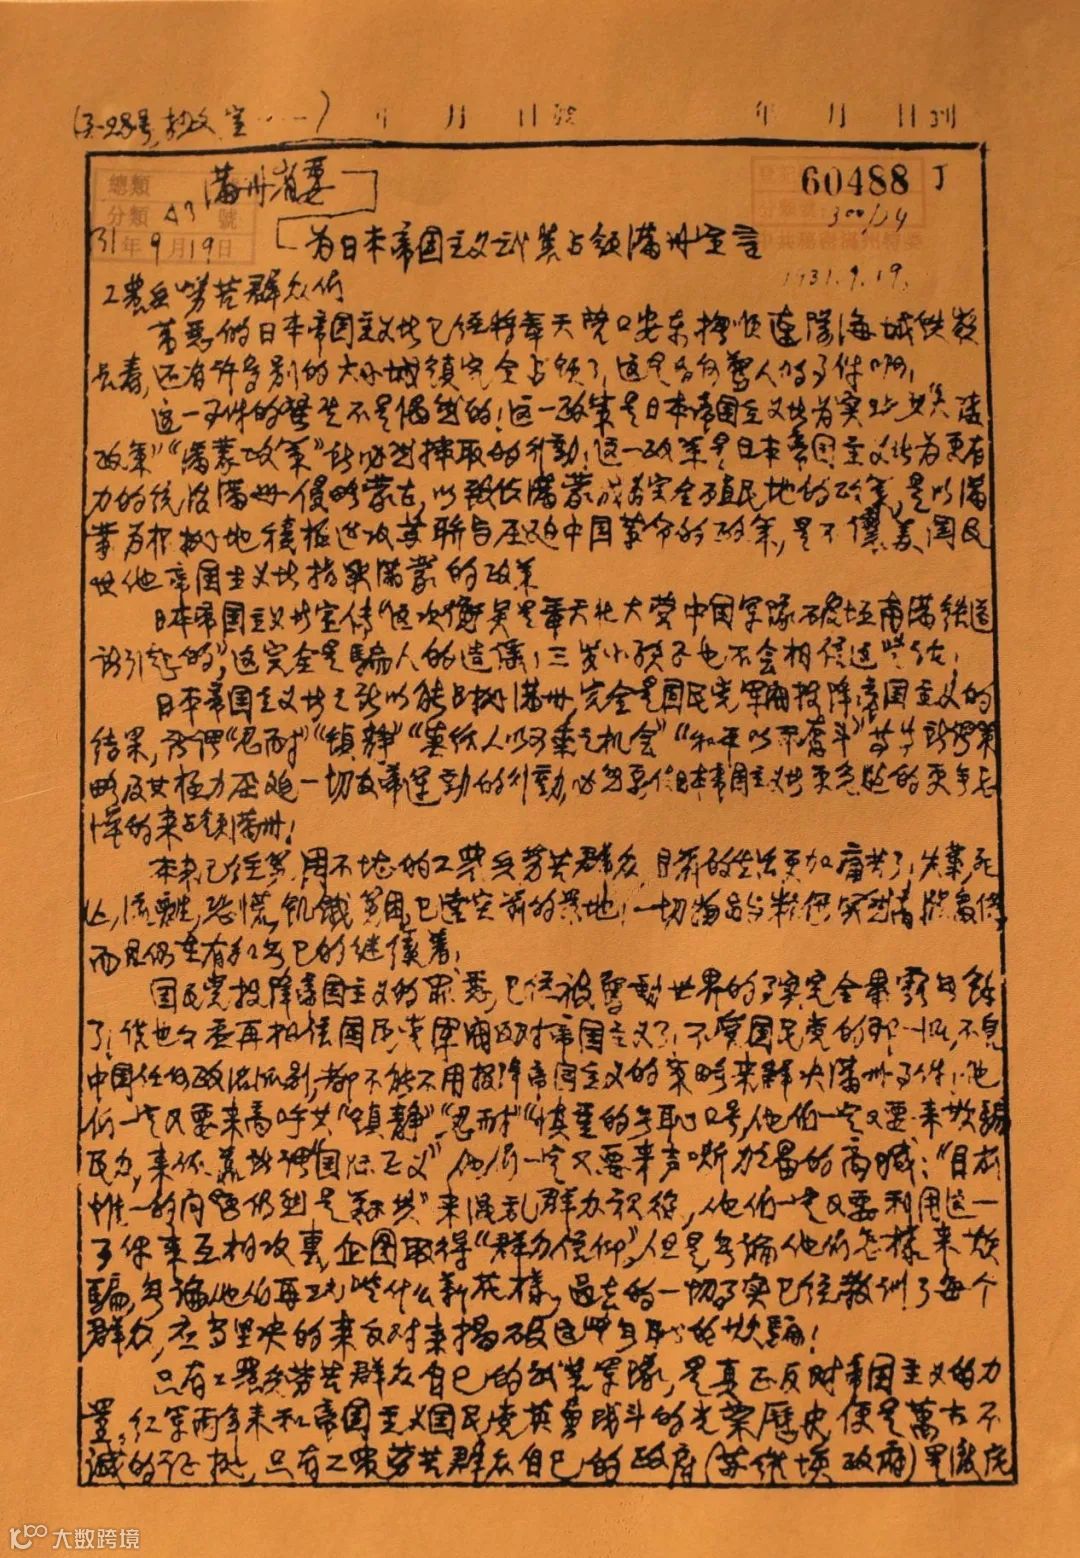 年 月 日
年 月 日到
總類
分類 号3 號
31年9月19日
满州省委
60488 丁
300/14
1931.9.19.
为日本帝国主义武装占领满州宣言
工农兵劳苦群众们
万恶的日本帝国主义者已经将奉天营口安东抚顺辽阳海城铁岭
长春,还有许多别的大小城镇完全占领了,这是多么惊人的事件啊!
这一事件的发生不是偶然的!这一政策是日本帝国主义者为实
政策”“满蒙政策”所必然采取的行动!这一政策是日本帝国主义者为更有
力的统治满州侵略蒙古,以致使满蒙成为完全殖民地的政策,是以满
蒙为根据地积极进攻苏联与压迫中国革命的政策,是不
其他帝国主义者指染满蒙的政策
日本帝国主义者宣传“这次冲突是奉天北大营中国军队破坏南满铁道
所引起的”,这完全是骗人的造谣,三岁小孩子也不会相信这些话!
日本帝国主义者之所以能占据满州,完全是国民党军阀投降帝国主义的
结果,所谓“忍耐”“镇静”“莫给人以可乘之机会”“和平以奋斗”等等
略及其极力压迫一切反帝运动的行动,必然要使日本帝国主义者更急进的更无忌
惮的来占领满州!
本来已经穷困不堪的工农兵劳苦群众,目前的生活更加痛苦了,失业死
亡,流离,恐慌,饥饿贫困,已达空前的绝地!一切物品与粮食突然高涨
而且仍在有加无已的继续着!
国民党投降帝国主义的罪恶,已经被惊动世界的事实完全暴露无余
了!谁也不要再相信国民党军阀反对帝国主义了!不管国民党的那一派,不管
中国任何政治派别,都不能不用投降帝国主义的策略来解决满州事件!他
们一定又要来高呼其“镇静”“忍耐”“慎重的无耻口号,他们一定又要来欺骗
民众,来依靠所谓“国际正义”他们一定又要来声嘶力竭的高喊:“目前
惟一的问题仍然是剿共”来混乱群众视线,他们一定又要利用这一
事件来互相攻击,企图取得“群众信仰”,但是无论他们怎样来欺
骗,无论他们再玩些什么新花样,过去的一切事实已经教训了每个
群众,应当坚决的来反对来揭破这些无耻的欺骗!
只有工农兵劳苦群众自己的武装军队,是真正反对帝国主义的力
量,红军两年来和帝国主义国民党英勇战斗的光荣历史,便是万古不
灭的证据,只有工农劳苦群众自己的政府(苏维埃政府)是彻底
大数跨境